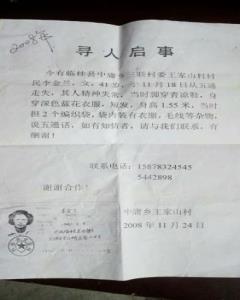 2008年
寻人启事
今有临桂县中庸乡三联村委王家山村村
民李金兰，女，41岁，于11月18日从五通
走失，其人精神失常，当时脚穿青凉鞋，身
穿深色蓝花衣服，短发，身高1.55米，当时
担2个编织袋，袋内装有衣服、毛线等杂物，
说五通话，如有知情者，请与我们联系，有
酬谢！
联系电话：15678324545
5442898
谢谢合作！
中庸乡王家山村
2008年11月24日